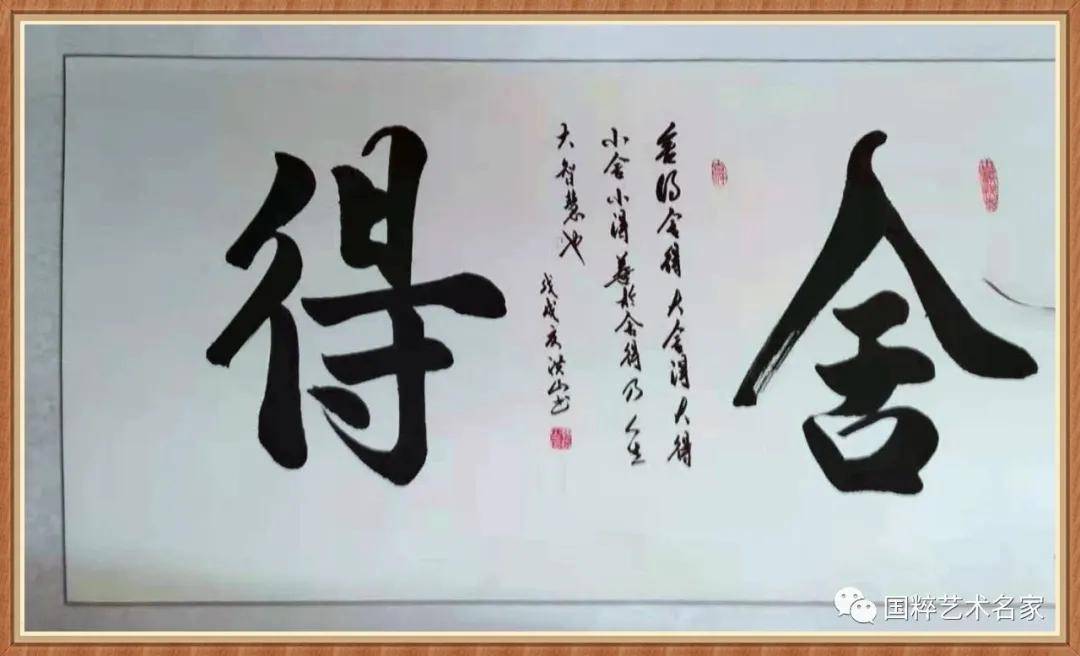 舍得
舍得舍得大舍得大得
小舍小得善於舍得乃人生
大智慧也
戊戌夏洪山书
国粹艺术名家